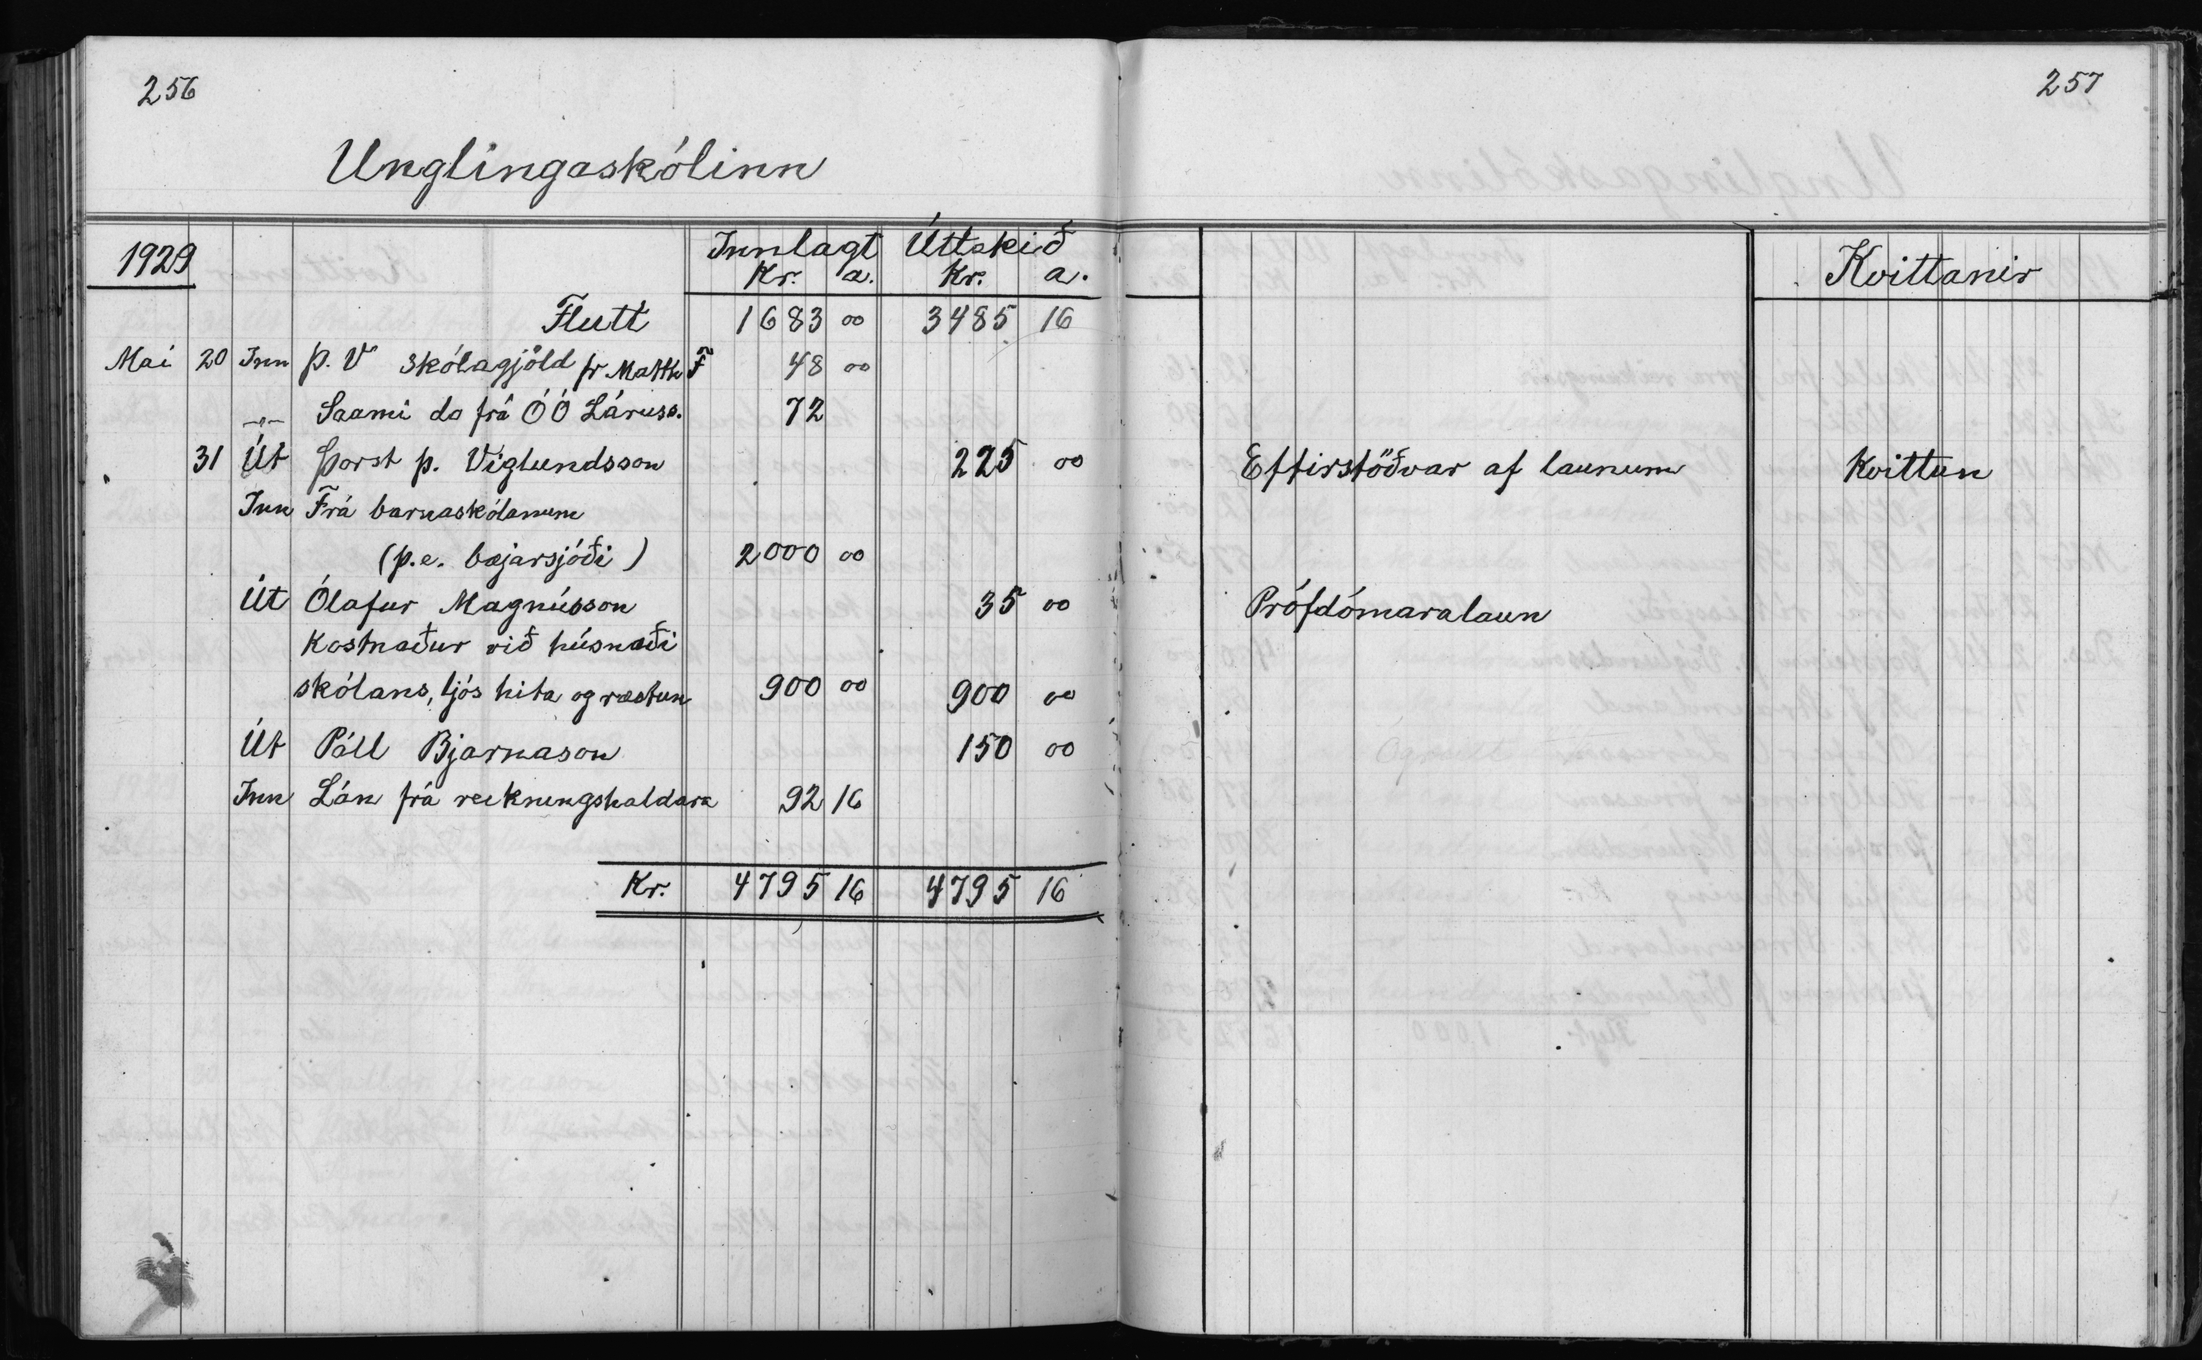 256
257
Unglingaskólinn
1929 Innlagt Úttekið
Kr. a. Kr. a. Kvittanir
Flutt 1683 00 3485 16
Mai 20 Inn Þ. V skólagjöld fr Matth F 48 00
-"- Sami do frá ÓÓ Láruss. 72
31 Út Þorst Þ. Víglundsson 225 00 Eftirstöðvar af launum Kvittun
Inn Frá barnaskólanum
(þ.e. bæjarsjóði) 2000 00
Út Ólafur Magnússon 35 00 Prófdómaralaun
Kostnaður við húsnæði
skólans, ljós hita og ræstun 900 00 900 00
Út Páll Bjarnason 150 00
Inn Lán frá reikningshaldara 92 16
Kr. 4795 16 4795 16